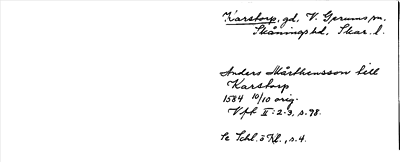 Karstorp, gd, V. Gerums sn.
Skånings hd. Skar. l.
Anders Mårthensson till
Karstorp
1584 10/10 orig.
Vpf II:2-3, s. 98.
Se Schl. ö Kl., s. 4.